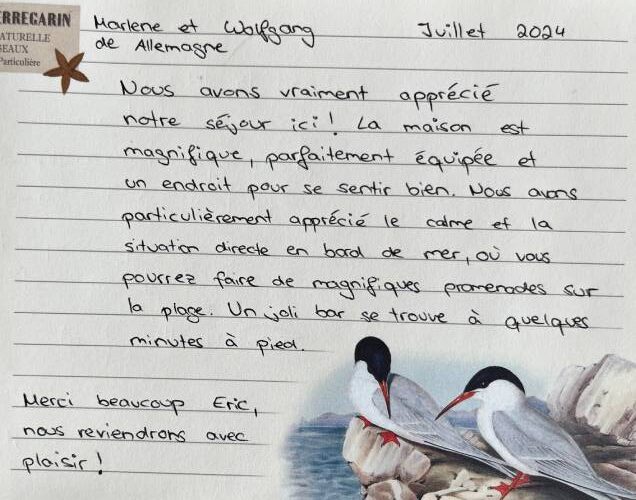 ERREGARIN
ATURELLE
EAUX
Particulière
Marlene et Wolfgang
de Allemagne
Juillet 2024
Nous avons vraiment apprécié
notre séjour ici! La maison est
magnifique, parfaitement équipée et
un endroit pour se sentir bien. Nous avons
particulièrement apprécié le calme et la
situation directe en bord de mer, où vous
pourrez faire de magnifiques promenades sur
la plage. Un joli bar se trouve à quelques
minutes à pied.
Merci beaucoup Eric,
nous reviendrons avec
plaisir!